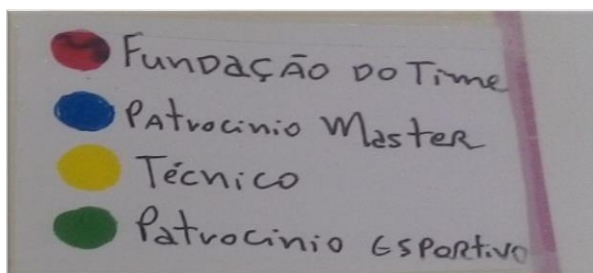 Fundação do Time
Patrocinio Master
Técnico
Patrocinio Esportivo